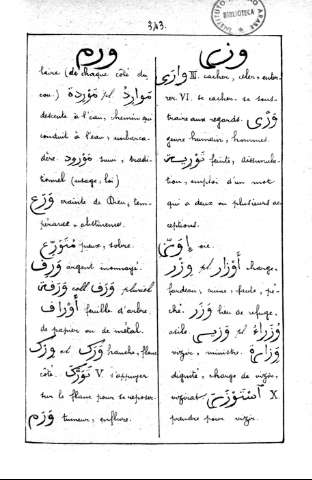 343.
INSTITUTO
BIBLIOTECA
ورم
laire (de chaque côté du
cou.) مَوْرِدة pl مَوارِد
descente à l'eau, chemin qui
conduit à l'eau, embarca-
dère. مَوْرود suivi, tradi-
tionnel (usage, loi)
وَرَع crainte de Dieu, tem-
pérance, abstinence.
مُتَوَرِّع pieux, sobre.
وَرِق argent monnayé.
وَرَق coll وَرَقة pluriel
أَوْراق feuille d'arbre,
de papier ou de métal.
وَرِك et وَرْك hanche, flanc
côté. تَوَرَّك V s'appuyer
sur le flanc pour se reposer.
وَرَم tumeur, enflure.
وزى
وارَى III. cacher, celer, enter-
rer VI. se cacher, se sous-
traire aux regards. وَرَى
genre humain, hommes.
تَوْرِية feinte, dissimula-
tion, emploi d'un mot
qui a deux ou plusieurs ac-
ceptions.
oie.
وِزْر pl أَوْزار charge,
fardeau, arme, faute, pé-
ché. وَزَر lieu de refuge,
asile. وَزير pl وُزَراء
vizir, ministre. وَزارة
dignité, charge de vizir,
vizirat. X
prendre pour vizir.